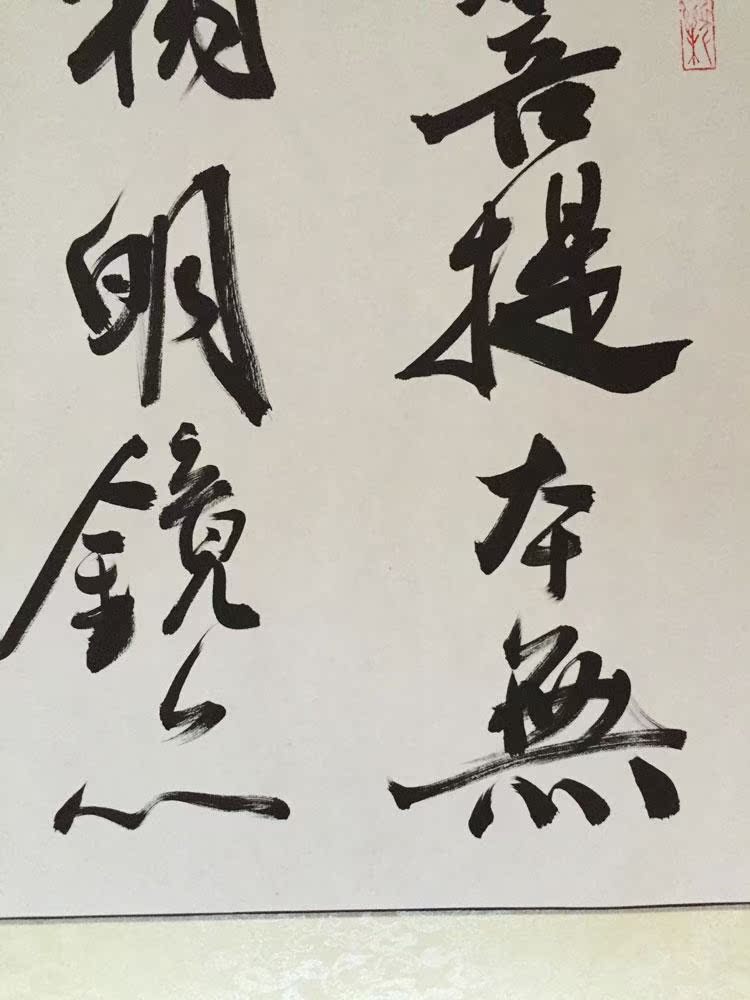 菩提本無
樹明鏡亦